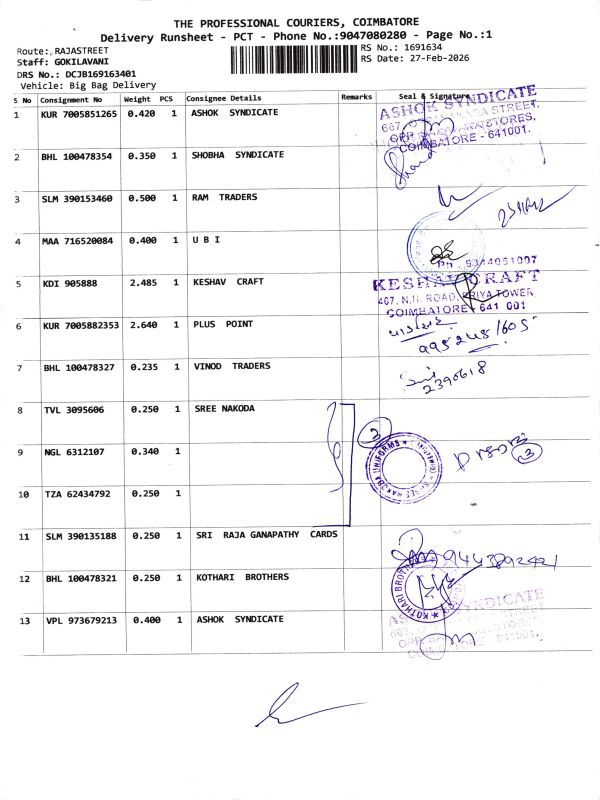 THE PROFESSIONAL COURIERS, COIMBATORE
Delivery Runsheet - PCT - Phone No.:9047080280 - Page No.:1
Route: RAJASTREET
RS No.: 1691634
Staff: GOKILAVANI
RS Date: 27-Feb-2026
DRS No.: DCJB169163401
Vehicle: Big Bag Delivery
S No Consignment No Weight PCS Consignee Details Remarks Seal & Signature
1 KUR 7005851265 0.420 1 ASHOK SYNDICATE
ASHOK SYNDICATE
COIMBATORE - 641001.
2 BHL 100478354 0.350 1 SHOBHA SYNDICATE
3 SLM 390153460 0.500 1 RAM TRADERS
4 MAA 716520084 0.400 1 U B I
Ph : 9344051007
5 KDI 905888 2.485 1 KESHAV CRAFT
KESHAV CRAFT
407, N.H. ROAD, PRIYA TOWER
COIMBATORE - 641 001
6 KUR 7005882353 2.640 1 PLUS POINT
7 BHL 100478327 0.235 1 VINOD TRADERS
2390618
8 TVL 3095606 0.250 1 SREE NAKODA
2
9 NGL 6312107 0.340 1
3
10 TZA 62434792 0.250 1
11 SLM 390135188 0.250 1 SRI RAJA GANAPATHY CARDS
12 BHL 100478321 0.250 1 KOTHARI BROTHERS
13 VPL 973679213 0.400 1 ASHOK SYNDICATE
ASHOK SYNDICATE